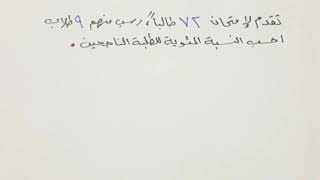 تقدم لإمتحان ٧٢ طالباً، رسب منهم ٩ طلاب
احسب النسبة المئوية للطلبة الناجحين.